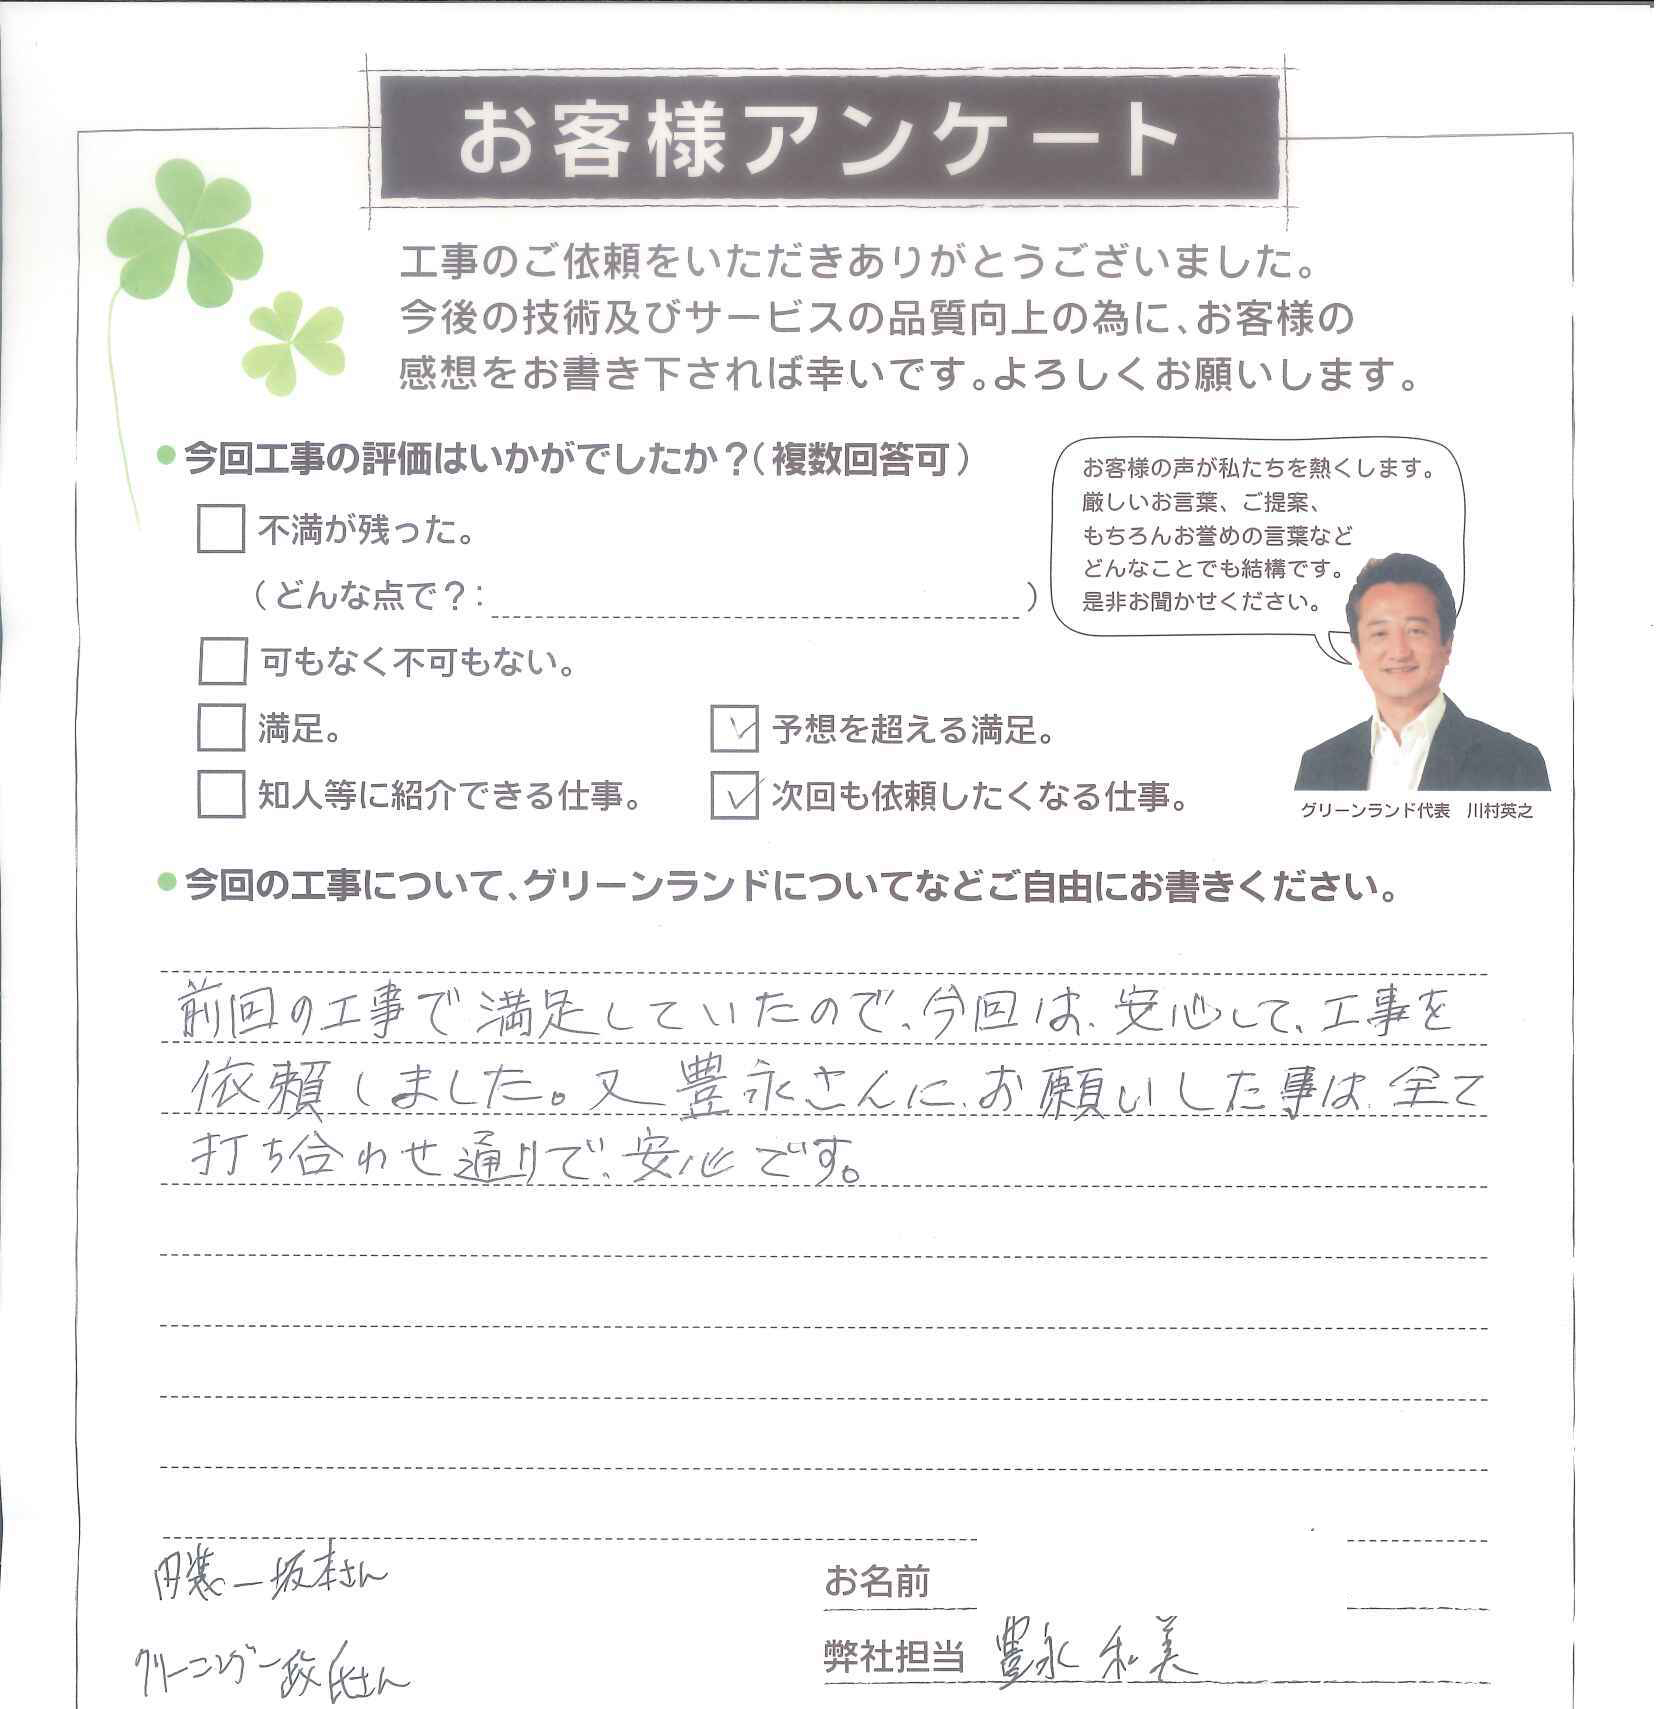 お客様アンケート
工事のご依頼をいただきありがとうございました。
今後の技術及びサービスの品質向上の為に、お客様の
感想をお書き下されば幸いです。よろしくお願いします。
今回工事の評価はいかがでしたか？（複数回答可）
不満が残った。
（どんな点で？：　）
可もなく不可もない。
満足。
予想を超える満足。
知人等に紹介できる仕事。
次回も依頼したくなる仕事。
お客様の声が私たちを熱くします。
厳しいお言葉、ご提案、
もちろんお誉めの言葉など
どんなことでも結構です。
是非お聞かせください。
グリーンランド代表　川村英之
今回の工事について、グリーンランドについてなどご自由にお書きください。
前回の工事で満足していたので、今回は、安心して、工事を
依頼しました。又豊永さんに、お願いした事は、全て
打ち合わせ通りで、安心です。
内装ー坂本さん
クリーニングー政氏さん
お名前
弊社担当 豊永 和美